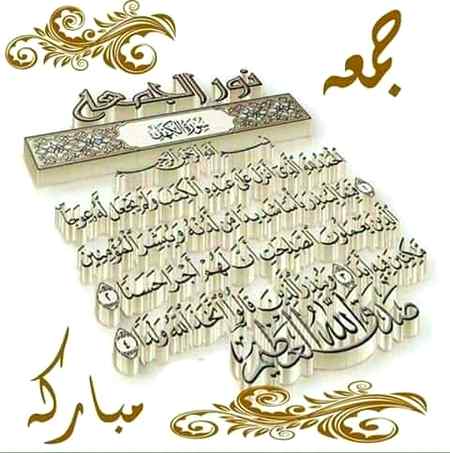 جمعه
نور الجمعه
سورة الكهف
بسم الله الرحمن الرحيم
أنزل على عبده الكتب ولم يجعل له عوجا
١ قيما لينذر بأسا شديدا من لدنه ويبشر المؤمنين
الذين يعملون الصلحت أن لهم أجرا حسنا ٢
مكثين فيه أبدا ٣ وينذر الذين قالوا اتخذ الله ولدا ٤
صدق الله العظيم
مباركه